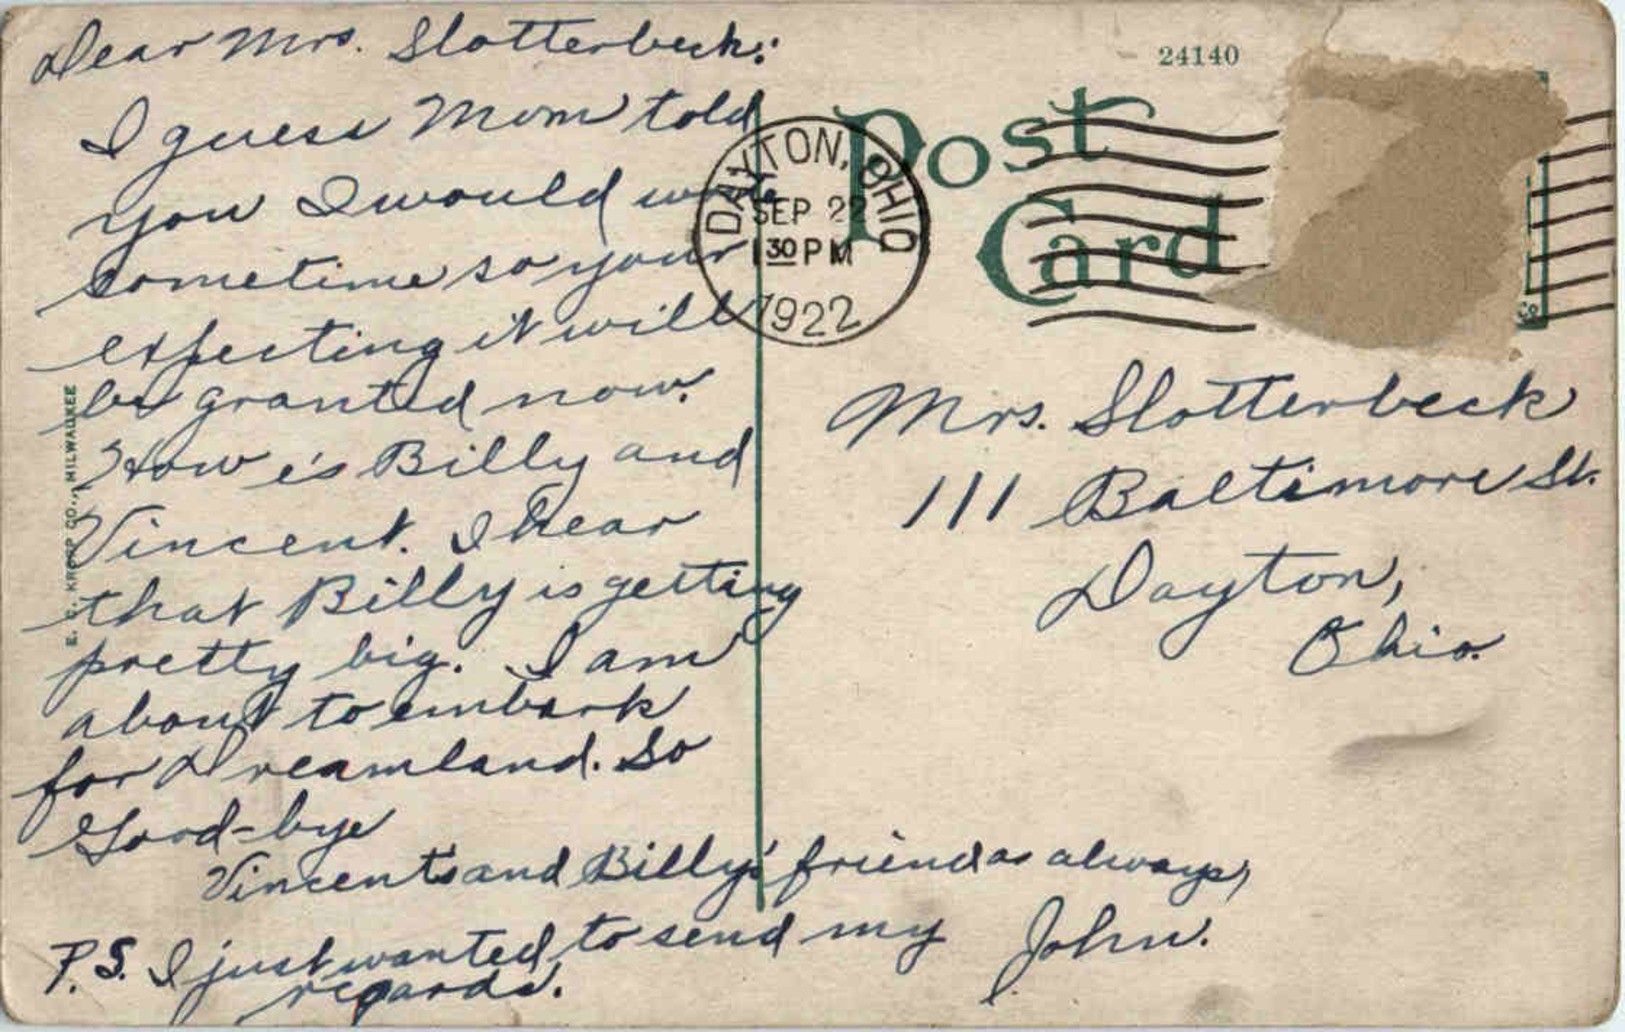 Dear Mrs. Slotterbeck:
I guess Mom told
you I would write
sometime so your
expecting it will
be granted now.
How is Billy and
Vincent. I hear
that Billy is getting
pretty big. I am
about to embark
for Dreamland. So
Good-bye
Vincent's and Billy's friend as always,
John.
P.S. I just wanted to send my
regards.
E. C. KROPP CO., MILWAUKEE
24140
Post
Card
DAYTON, OHIO
SEP 22
1 30 PM
1922
Mrs. Slotterbeck
111 Baltimore St.
Dayton,
Ohio.